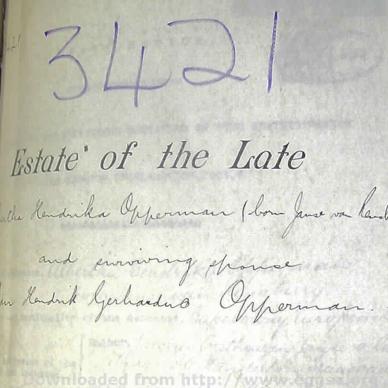 3421
Estate of the Late
Hendrika Opperman (born Janse van
and surviving spouse
Hendrik Gerhardus Opperman.
Downloaded from http://www.eggsa.org